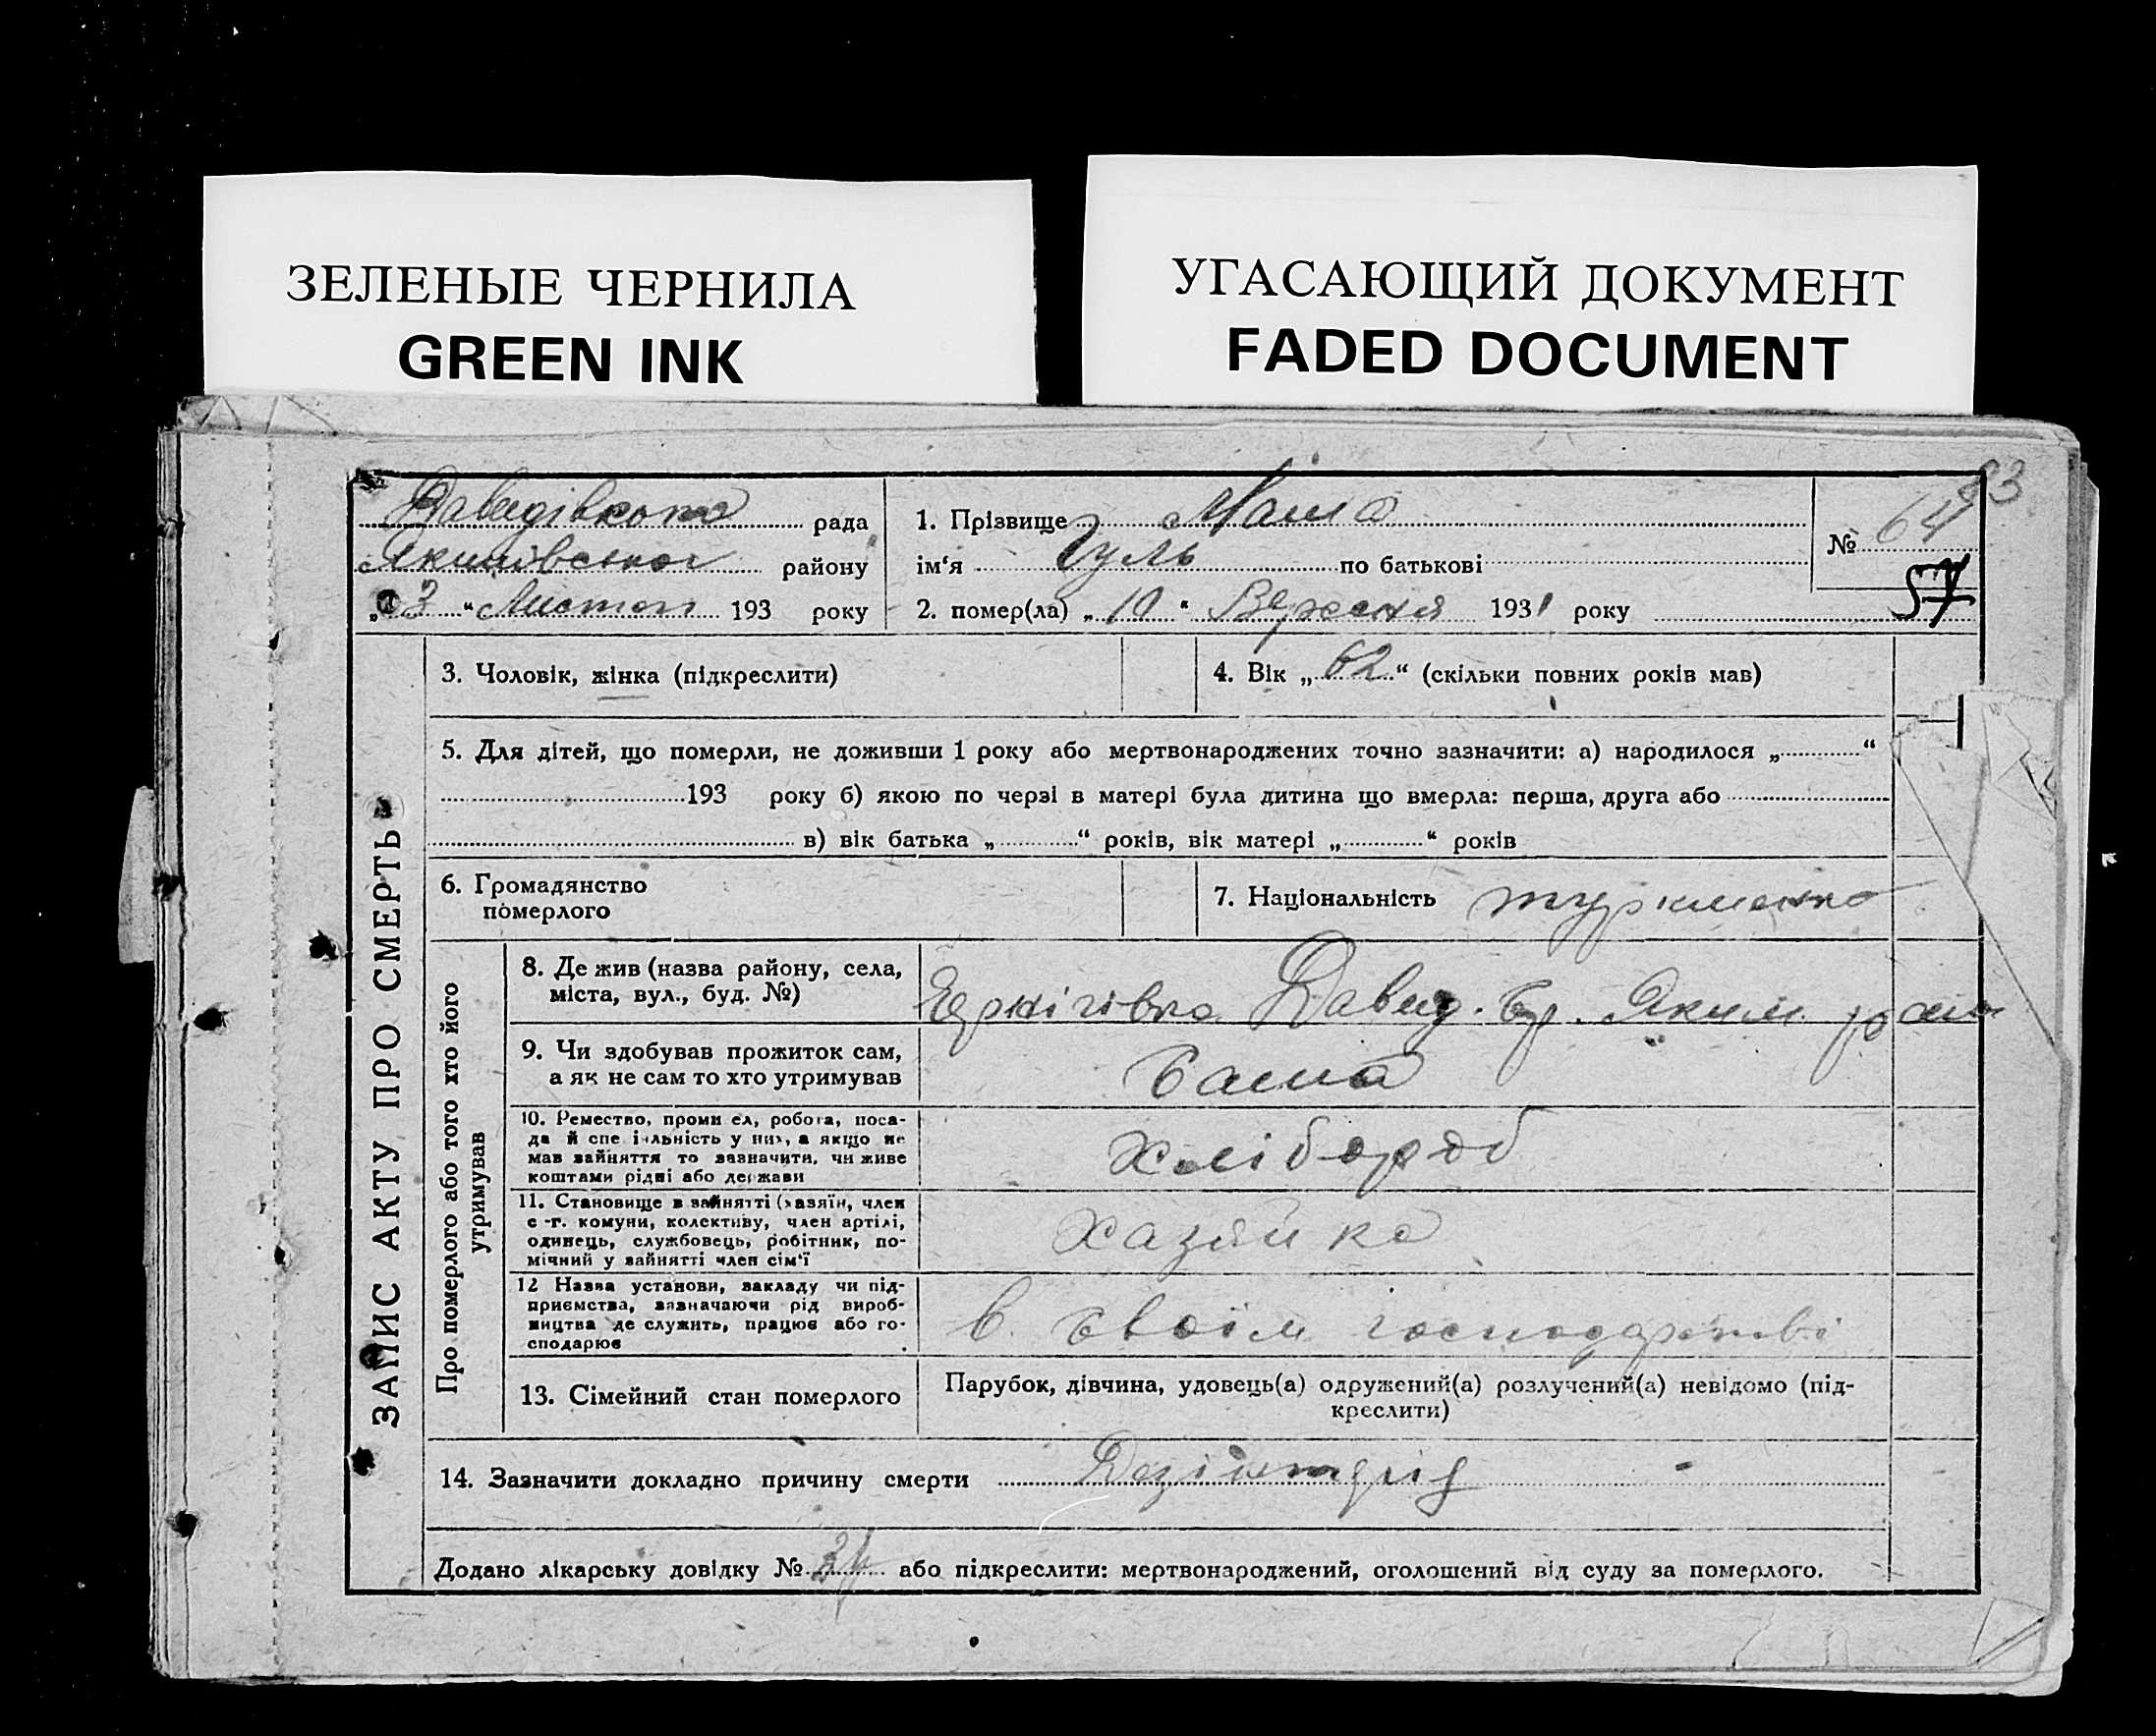 ЗЕЛЕНЫЕ ЧЕРНИЛА
GREEN INK
УГАСАЮЩИЙ ДОКУМЕНТ
FADED DOCUMENT
93
Давидівкото рада
Якимівської району
3 “ Листоп 193 року
1. Прізвище Маша
ім‘я Гуль по батькові
2. помер(ла) „ 10 “ Вересня 1931 року
№ 64
57
ЗАПИС АКТУ ПРО СМЕРТЬ
3. Чоловік, жінка (підкреслити)
4. Вік „ 62 “ (скільки повних років мав)
5. Для дітей, що померли, не доживши 1 року або мертвонароджених точно зазначити: а) народилося „ “
193 року б) якою по черзі в матері була дитина що вмерла: перша, друга або
в) вік батька „ “ років, вік матері „ “ років
6. Громадянство
померлого
7. Національність туркменка
Про померлого або того хто його
утримував
8. Де жив (назва району, села,
міста, вул., буд. №)
Давид. Яким.
9. Чи здобував прожиток сам,
а як не сам то хто утримував
Сама
10. Ремество, проми ел, робота, поса-
да й спе і льність у них, а якщо не
мав зайняття то зазначити, чи живе
коштами рідні або держави
хлібороб
11. Становище в зайнятті (хазяїн, член
с-г. комуни, колективу, член артілі,
одинець, службовець, робітник, по-
мічний у зайнятті член сім‘ї
хазяйка
12 Назва установи, закладу чи під-
приємства, зазначаючи рід вироб-
ництва де служить, працює або го-
сподарює
в своїм господарстві
13. Сімейний стан померлого
Парубок, дівчина, удовець(а) одружений(а) розлучений(а) невідомо (під-
креслити)
14. Зазначити докладно причину смерти
Додано лікарську довідку № 34 або підкреслити: мертвонароджений, оголошений від суду за померлого.